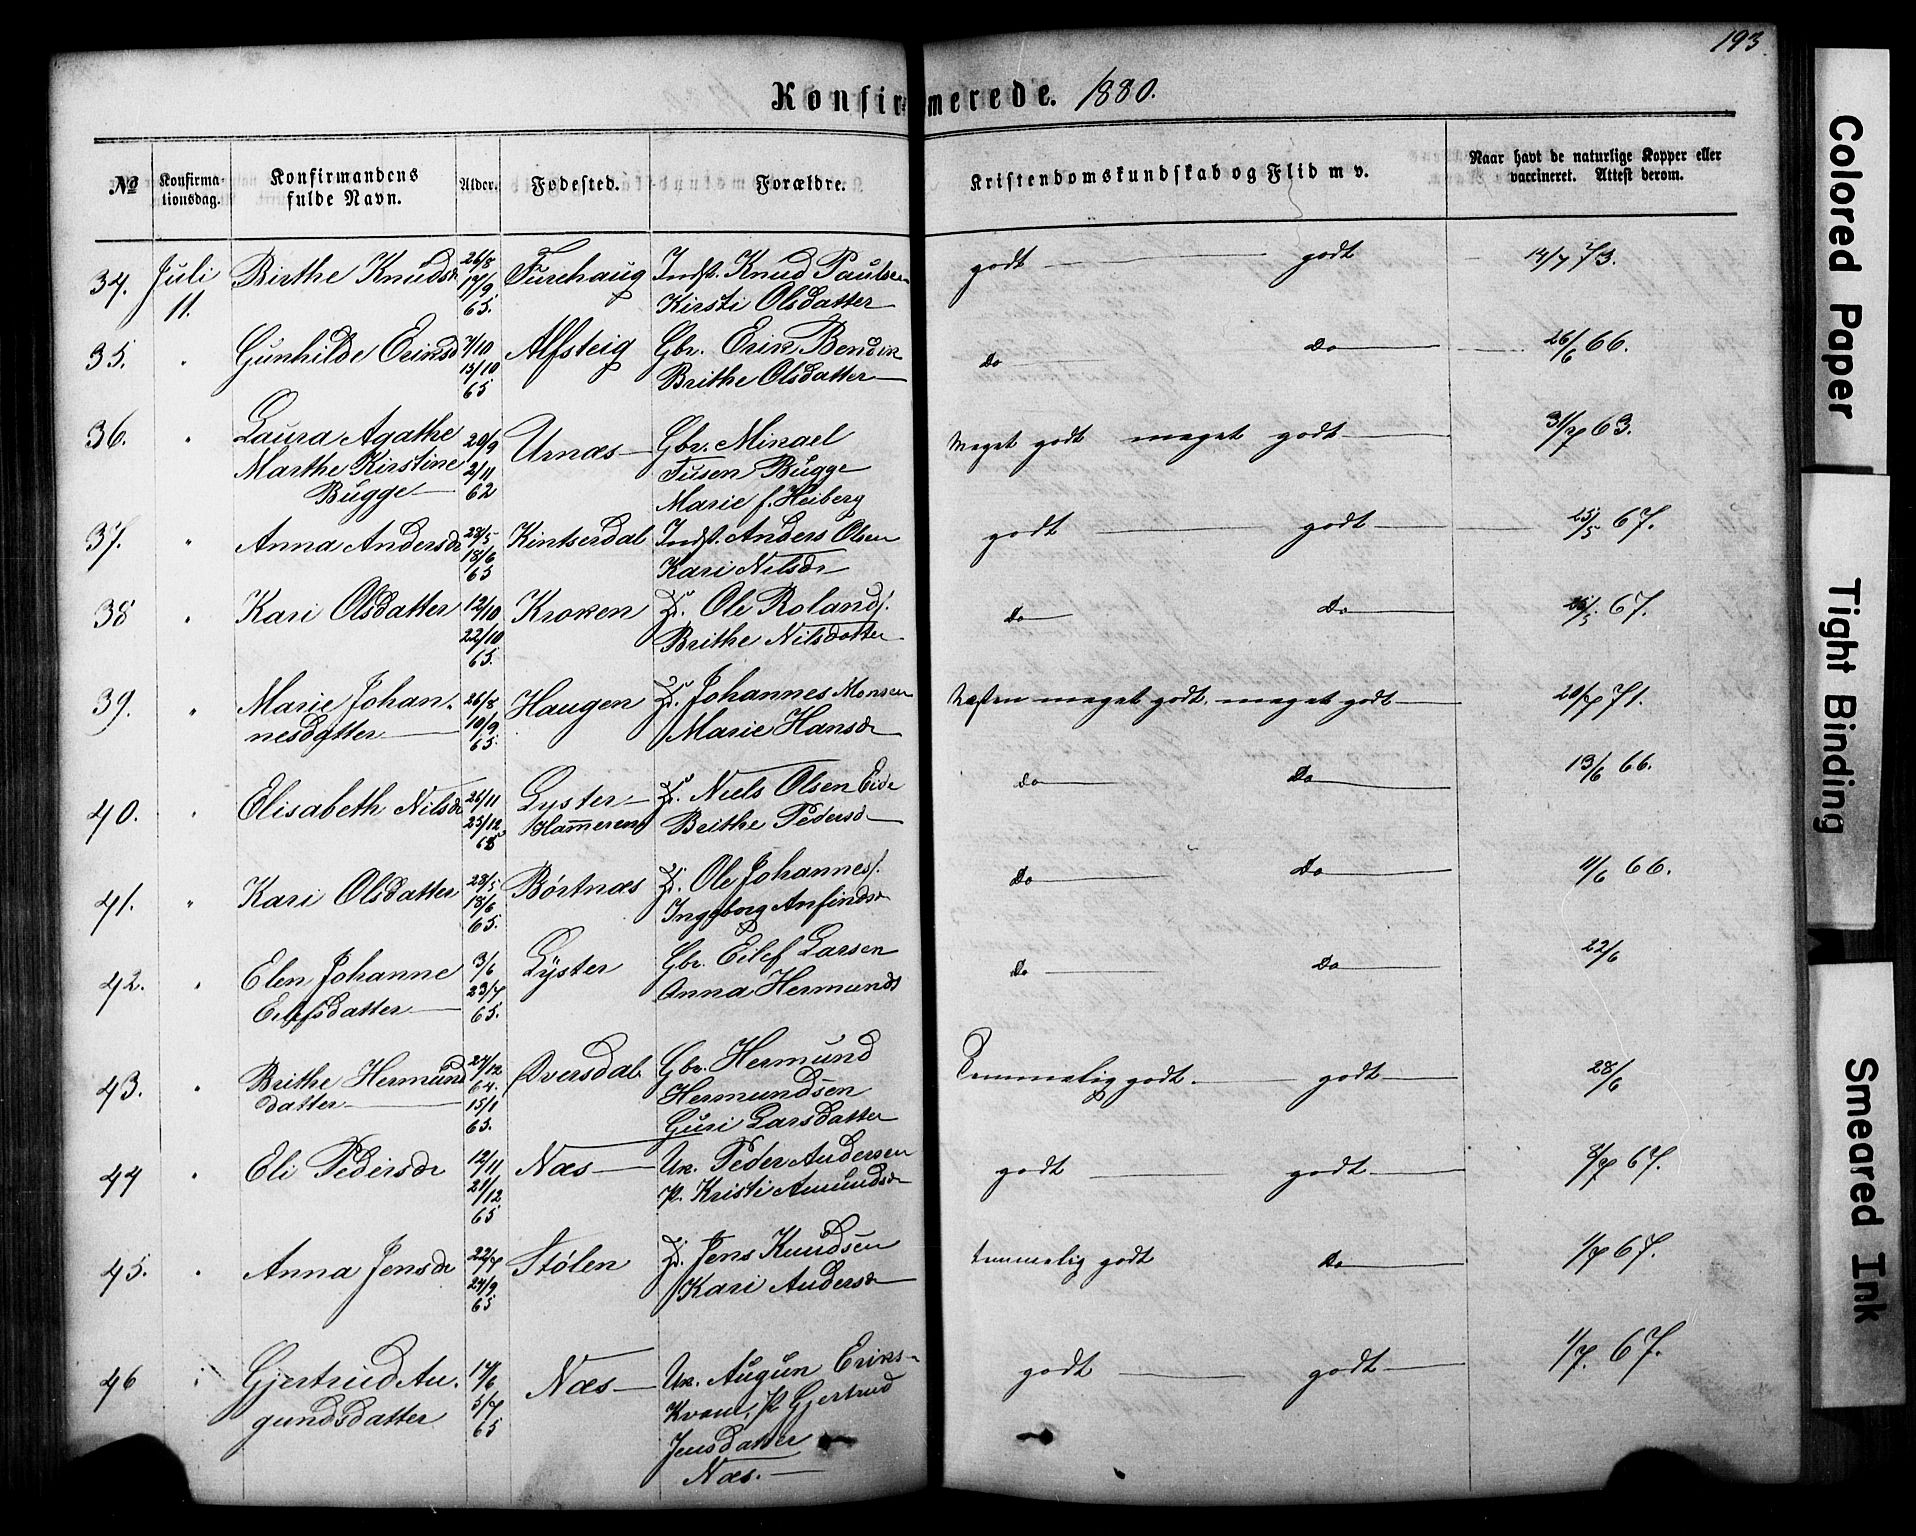 193.
Konfirmerede. 1880.
No
Konfirma-
tionsdag.
Konfirmandens
fulde Navn.
Alder.
Fødested.
Forældre.
Kristendomskundskab og Flid m v.
Naar havt de naturlige Kopper eller
vaccineret. Attest derom.
34. Juli 11. Birthe Knudsdr 26/8 17/9 65. Furehaug Indst. Knud Paulsen godt godt 14/7 73.
Kirsti Olsdatter
35. " Gunhilde Eriksd 7/10 15/10 65 Alfsteig Gbr. Erik Bendik do do 26/6 66.
Brithe Olsdatter
36. " Laura Agathe 20/9 2/11 62 Urnæs Gbr. Mikael Meget godt meget godt 31/7 63.
Marthe Kirstine Fusen Bugge
Bugge Marie f. Heiberg
37. " Anna Andersdr 28/5 18/6 65 Kintserdal Indst. Anders Olsen godt godt 25/5 67.
Kari Nilsdr
38 " Kari Olsdatter 12/10 22/10 65. Kroken Ole Roland do do 25/5 67.
Brithe Nilsdatter
39. " Marie Johan- 26/8 10/9 65. Haugen Johannes Monsen Næsten meget godt, meget godt 20/7 71.
nesdatter Marie Hansdr
40. " Elisabeth Nilsdr 26/11 25/12 65 Lyster Niels Olsen Eide do do 13/6 66.
Hammeren Brithe Pedersd
41. " Kari Olsdatter 28/5 18/6 65. Børtnæs Ole Johannes do do 1/6 66.
Ingeborg Anfindsdr
42. " Elen Johanne 3/6 23/7 65. Lyster Gbr. Eilef Larsen do do 22/6
Eilefsdatter Anna Hermunds
43. " Brithe Hermund 27/12 64. 15/1 65. Øversdal Gbr. Hermund Temmelig godt. godt 28/6
datter Hermundsen
Guri Larsdatter
44 " Eli Pedersdr 12/11 21/12 65 Næs Uk. Peder Andersen godt godt 2/7 67.
P. Kristi Amundsdr
45. " Anna Jensdr 22/7 24/9 65 Stølen Jens Knudsen temmelig godt do 1/7 67.
Kari Andersdr
46 " Gjertrud Au- 17/6 5/7 65 Næs Uk. Augun Eriks- godt godt 1/7. 67.
gundsdatter Kvam, P. Gjertrud
Jensdatter
Næs.
Colored Paper
Tight Binding
Smeared Ink